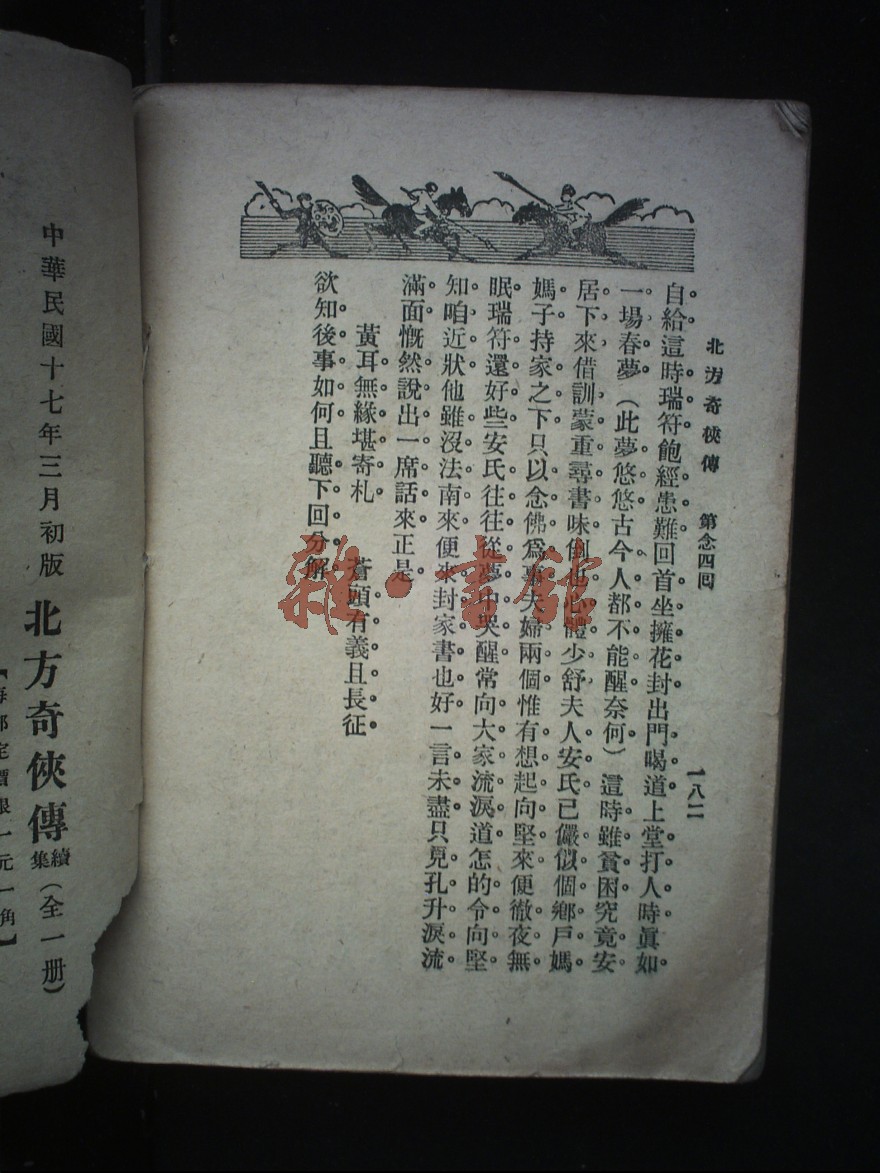 北方奇俠傳 第念四回 一八二
自給這時瑞符飽經患難回首坐擁花封出門喝道上堂打人時眞如
一場春夢（此夢悠悠古今人都不能醒奈何）這時雖貧困究竟安
居下來借訓蒙重尋書味倒也心體少舒夫人安氏已儼似個鄕戶媽
媽子持家之下只以念佛爲事夫婦兩個惟有想起向堅來便徹夜無
眠瑞符還好些安氏往往從夢中哭醒常向大家流淚道怎的令向堅
知咱近狀他雖沒法南來便來封家書也好一言未盡只見孔升淚流
滿面慨然說出一席話來正是
黃耳無緣堪寄札 蒼頭有義且長征
欲知後事如何且聽下回分解
中華民國十七年三月初版 北方奇俠傳續集（全一册）
【每部定價銀一元一角】
雜·書館